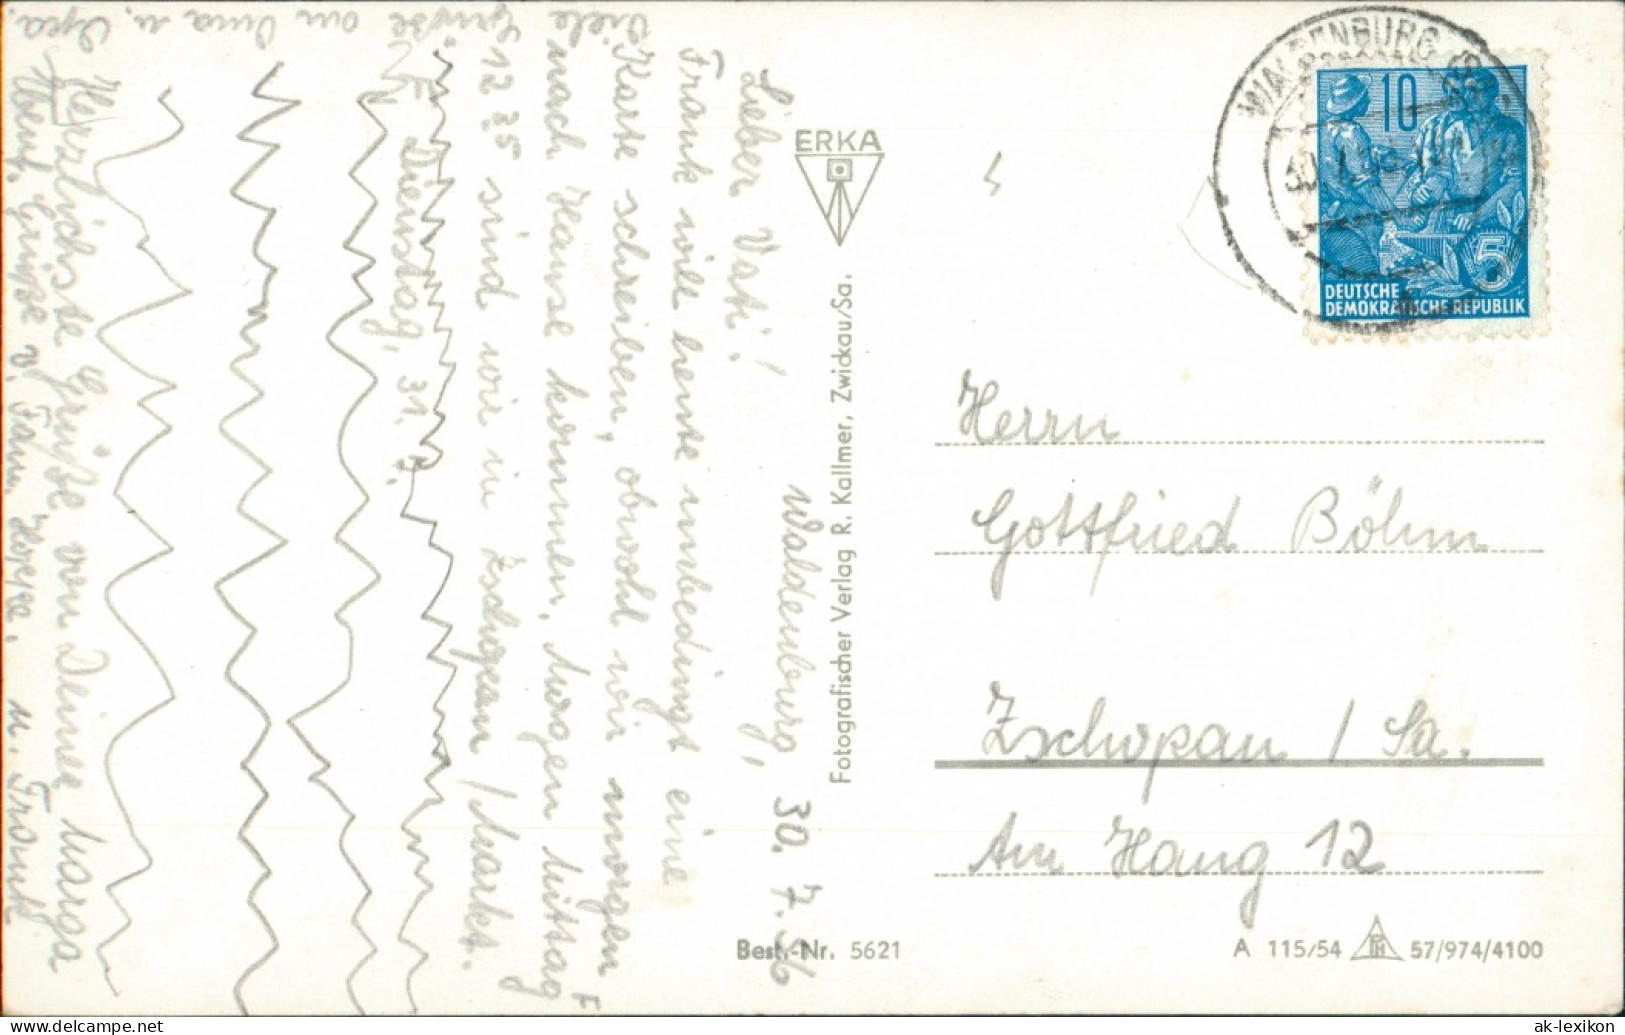 Waldenburg, 30. 7. 56
Lieber Vati!
Frank will heute unbedingt eine
Karte schreiben, obwohl wir morgen
nach Hause kommen. Morgen Mittag
12 35 sind wir in Zschopau / Markt.
F Dienstag, 31. 7.
Herzlichste Grüße von Deiner Marga
u. Frank
viele
Grüße an Oma u. Opa
ERKA
Fotografischer Verlag R. Kallmer, Zwickau/Sa.
Best.-Nr. 5621
WALDENBURG
10
5
DEUTSCHE
DEMOKRATISCHE REPUBLIK
Herrn
Gottfried Böhm
Zschopau / Sa.
Am Hang 12
A 115/54 57/974/4100
ak-lexikon